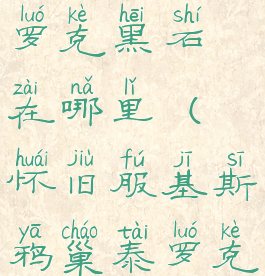 luó kè hēi shí
罗克黑石
zài nǎ lǐ
在哪里（
huái jiù fú jī sī
怀旧服基斯
yā cháo tài luó kè
鸦巢泰罗克